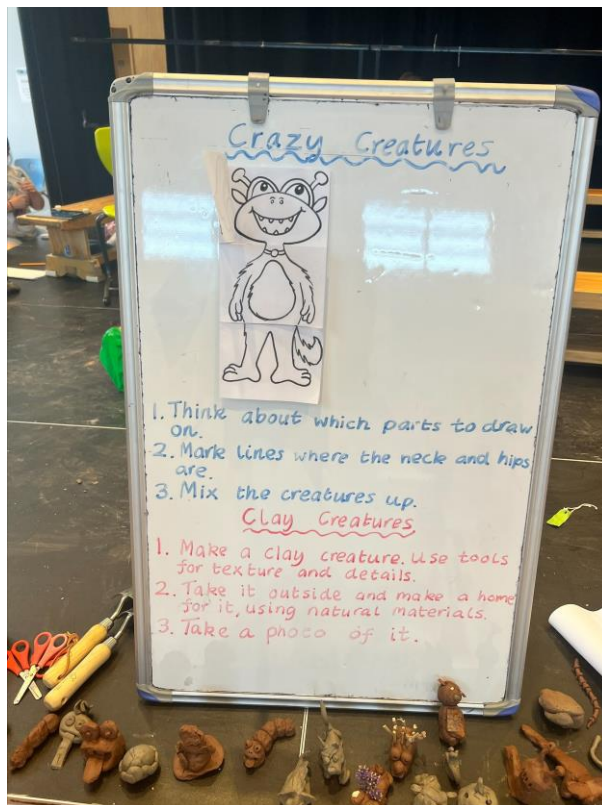 Crazy Creatures
1. Think about which parts to draw
on.
2. Mark lines where the neck and hips
are.
3. Mix the creatures up.
Clay Creatures
1. Make a clay creature. Use tools
for texture and details.
2. Take it outside and make a home
for it, using natural materials.
3. Take a photo of it.